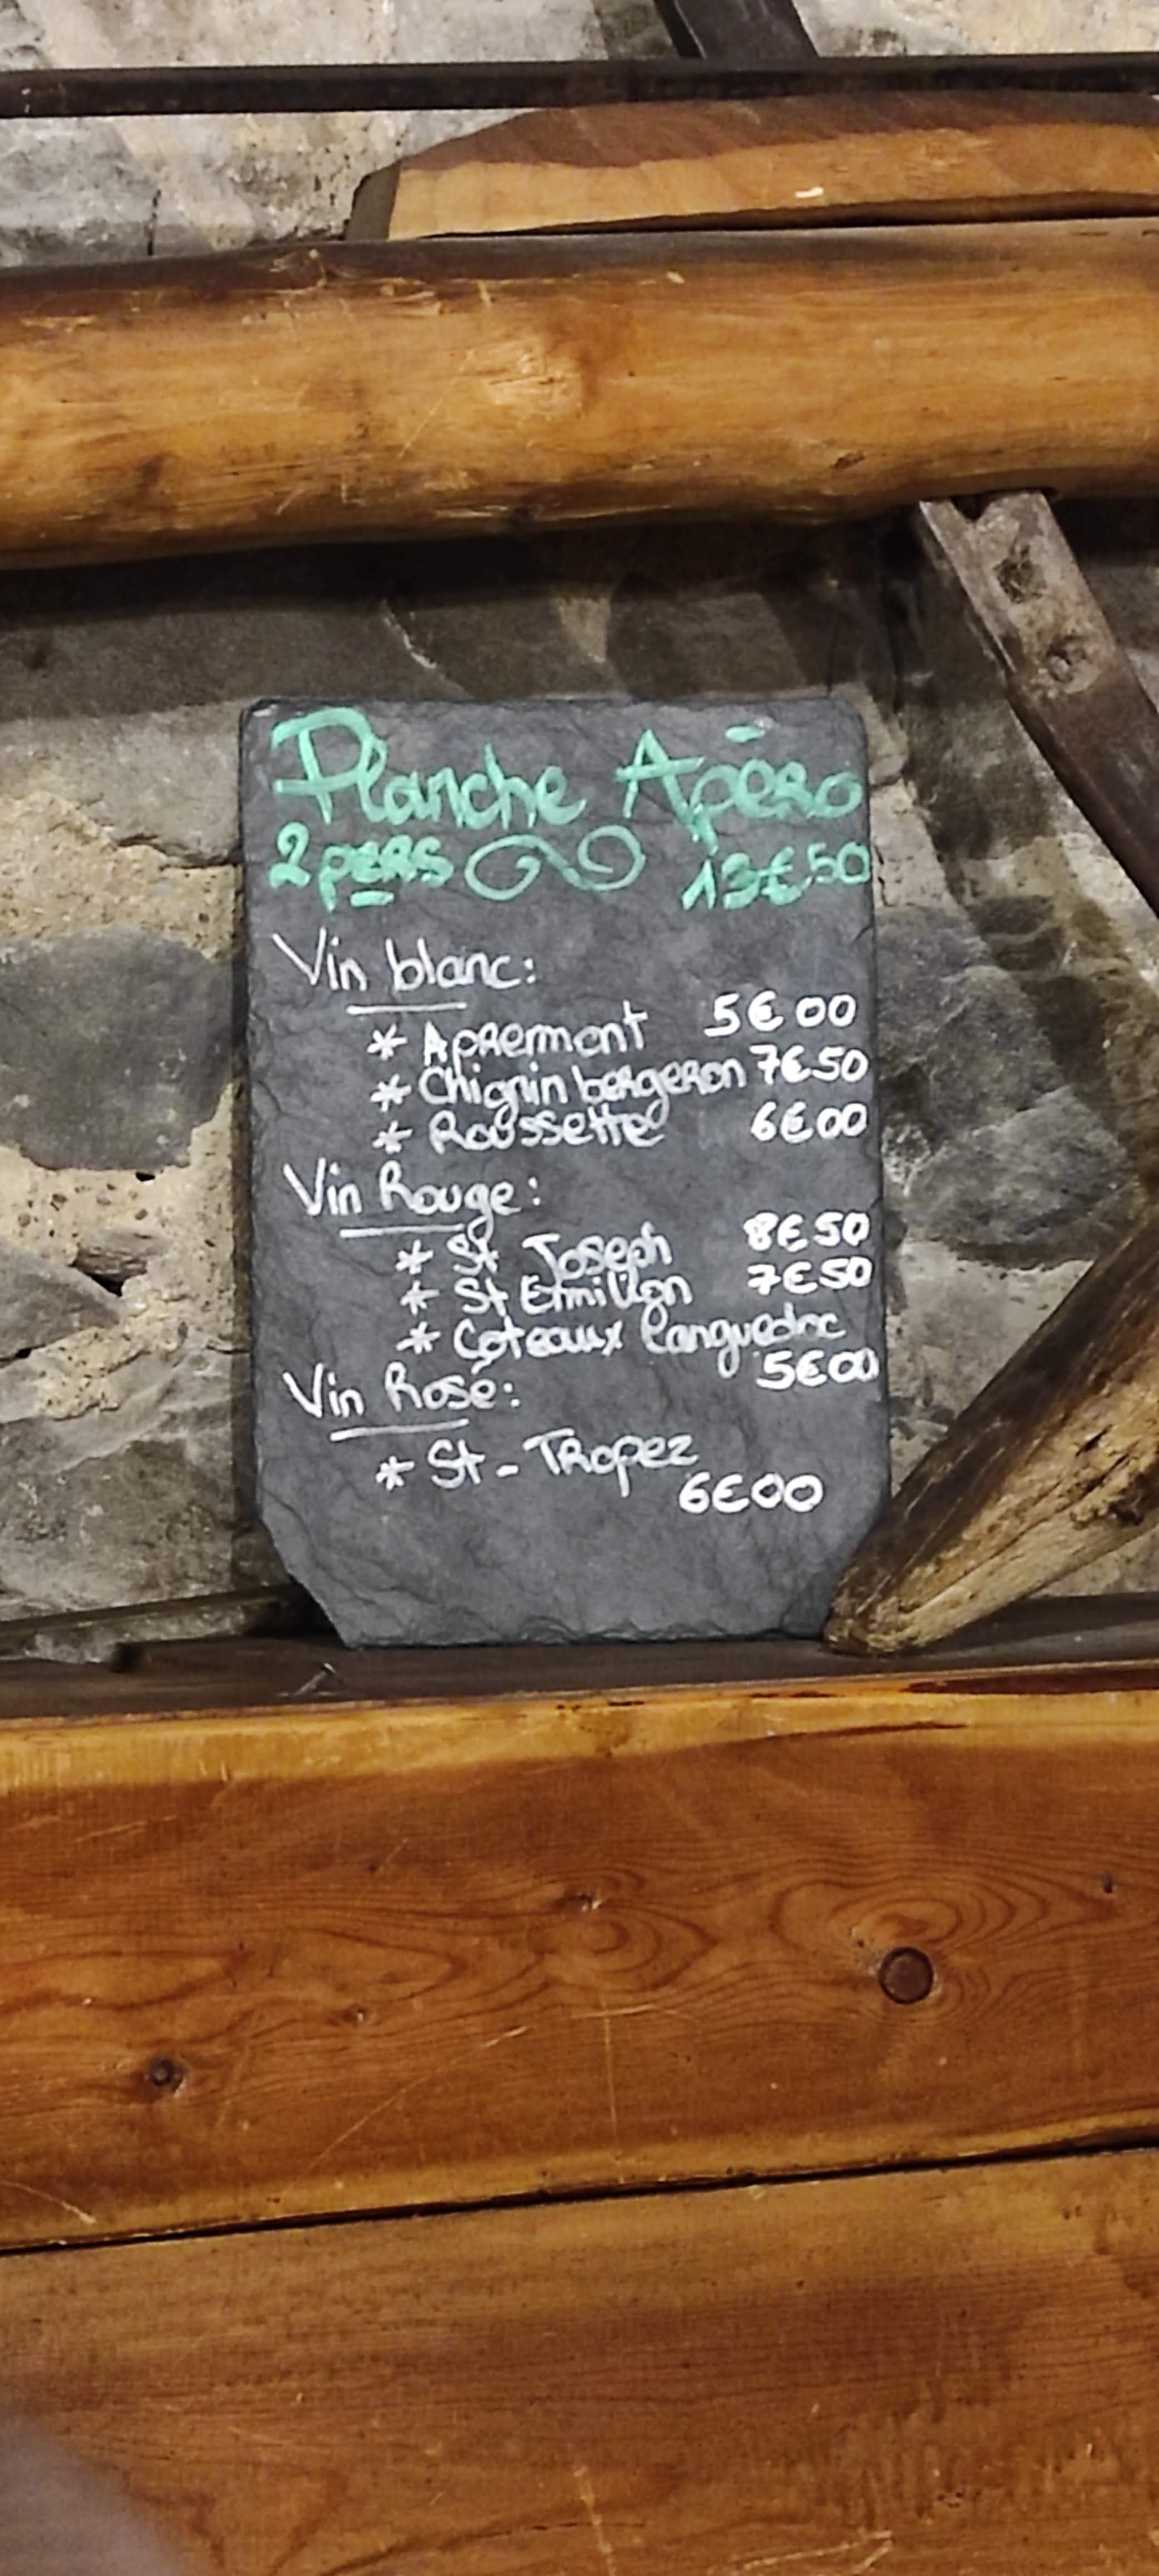 Planche Apéro
2 pers 13€50
Vin blanc:
* Apremont 5€00
* Chignin bergeron 7€50
* Roussette 6€00
Vin Rouge:
* St Joseph 8€50
* St Emillon 7€50
* Coteaux Languedoc
5€00
Vin Rosé:
* St-Tropez
6€00